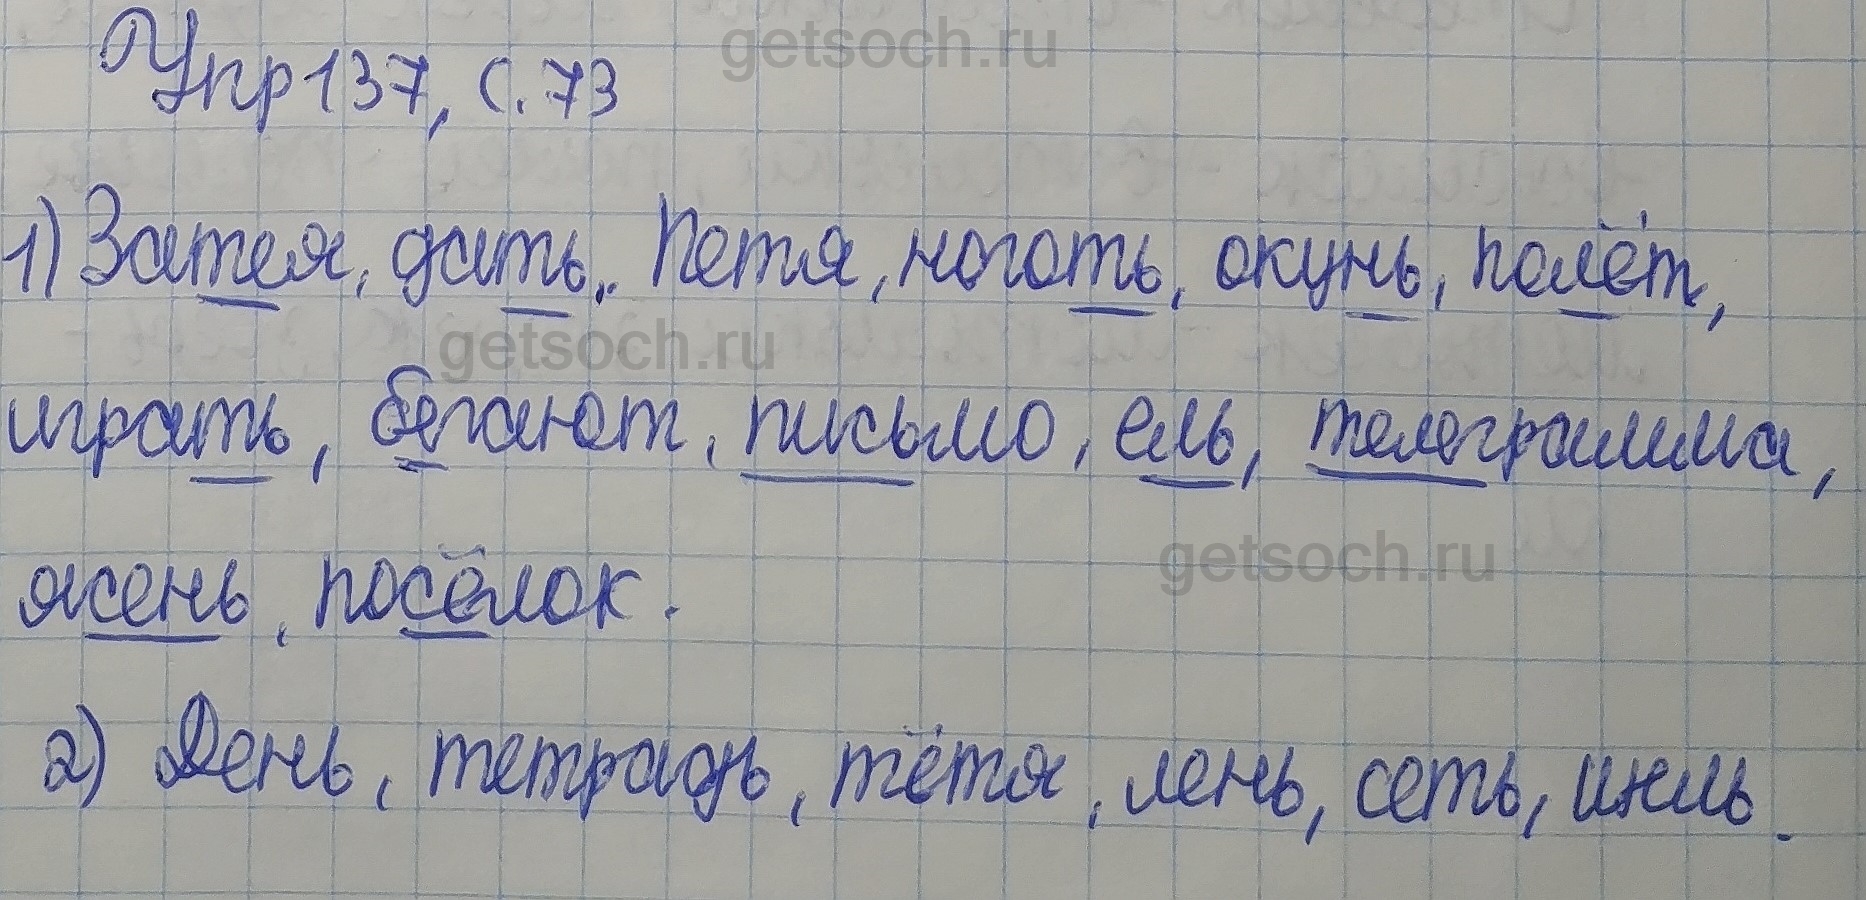 getsoch.ru
Упр 137, с. 73
1) Затея, дать, Петя, ноготь, окунь, полёт,
getsoch.ru
играть, бегают, письмо, ель, телеграмма,
getsoch.ru
ясень, посёлок.
2) День, тетрадь, тётя, лень, сеть, июль.